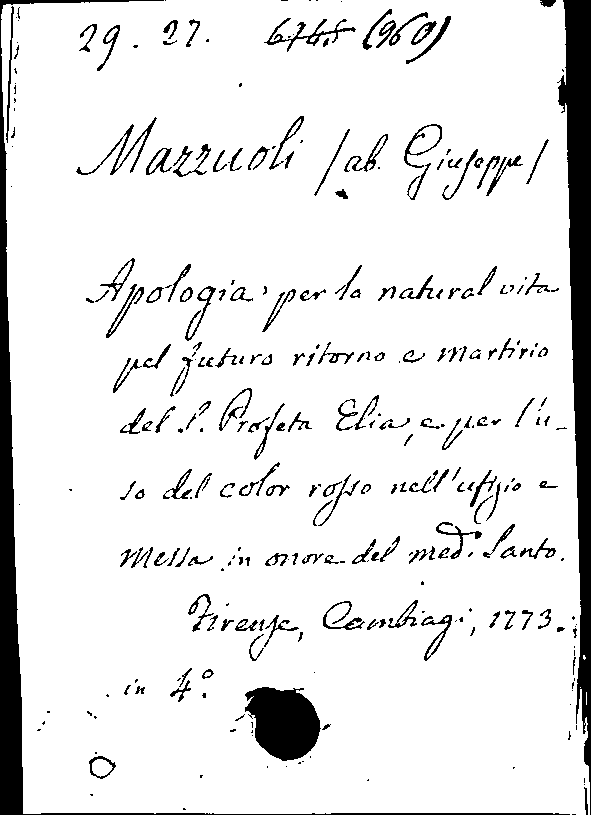 29. 27. 6745 (960)
Mazzuoli /ab. Giuseppe/
Apologia per la natural vita
pel futuro ritorno e martirio
del S. Profeta Elia, e per l'u-
so del color rosso nell'ufizio e
Messa in onore del med.º Santo.
Firenze, Cambiagi, 1773.
in 4º.